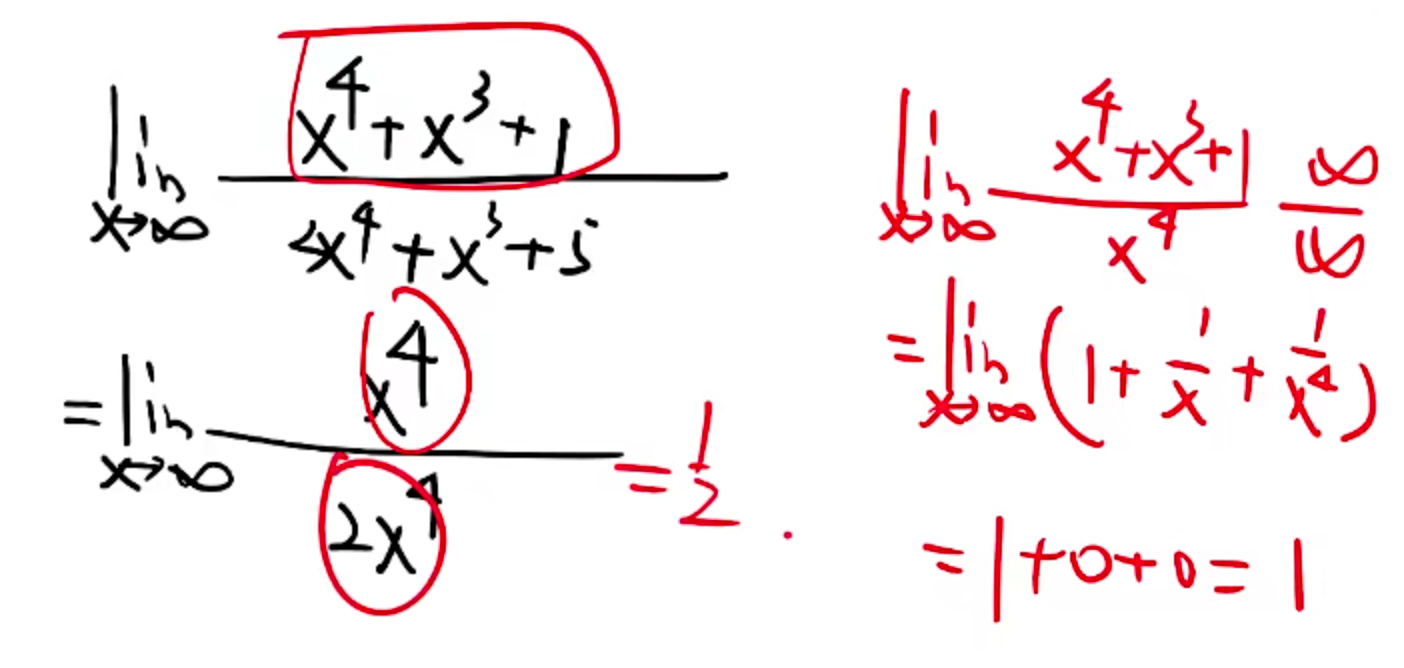 lim x→∞ (x⁴+x³+1)/(2x⁴+x³+5)
=lim x→∞ x⁴/2x⁴ = 1/2.
lim x→∞ (x⁴+x³+1)/x⁴ ∞/∞
=lim x→∞ (1+1/x+1/x⁴)
=1+0+0=1